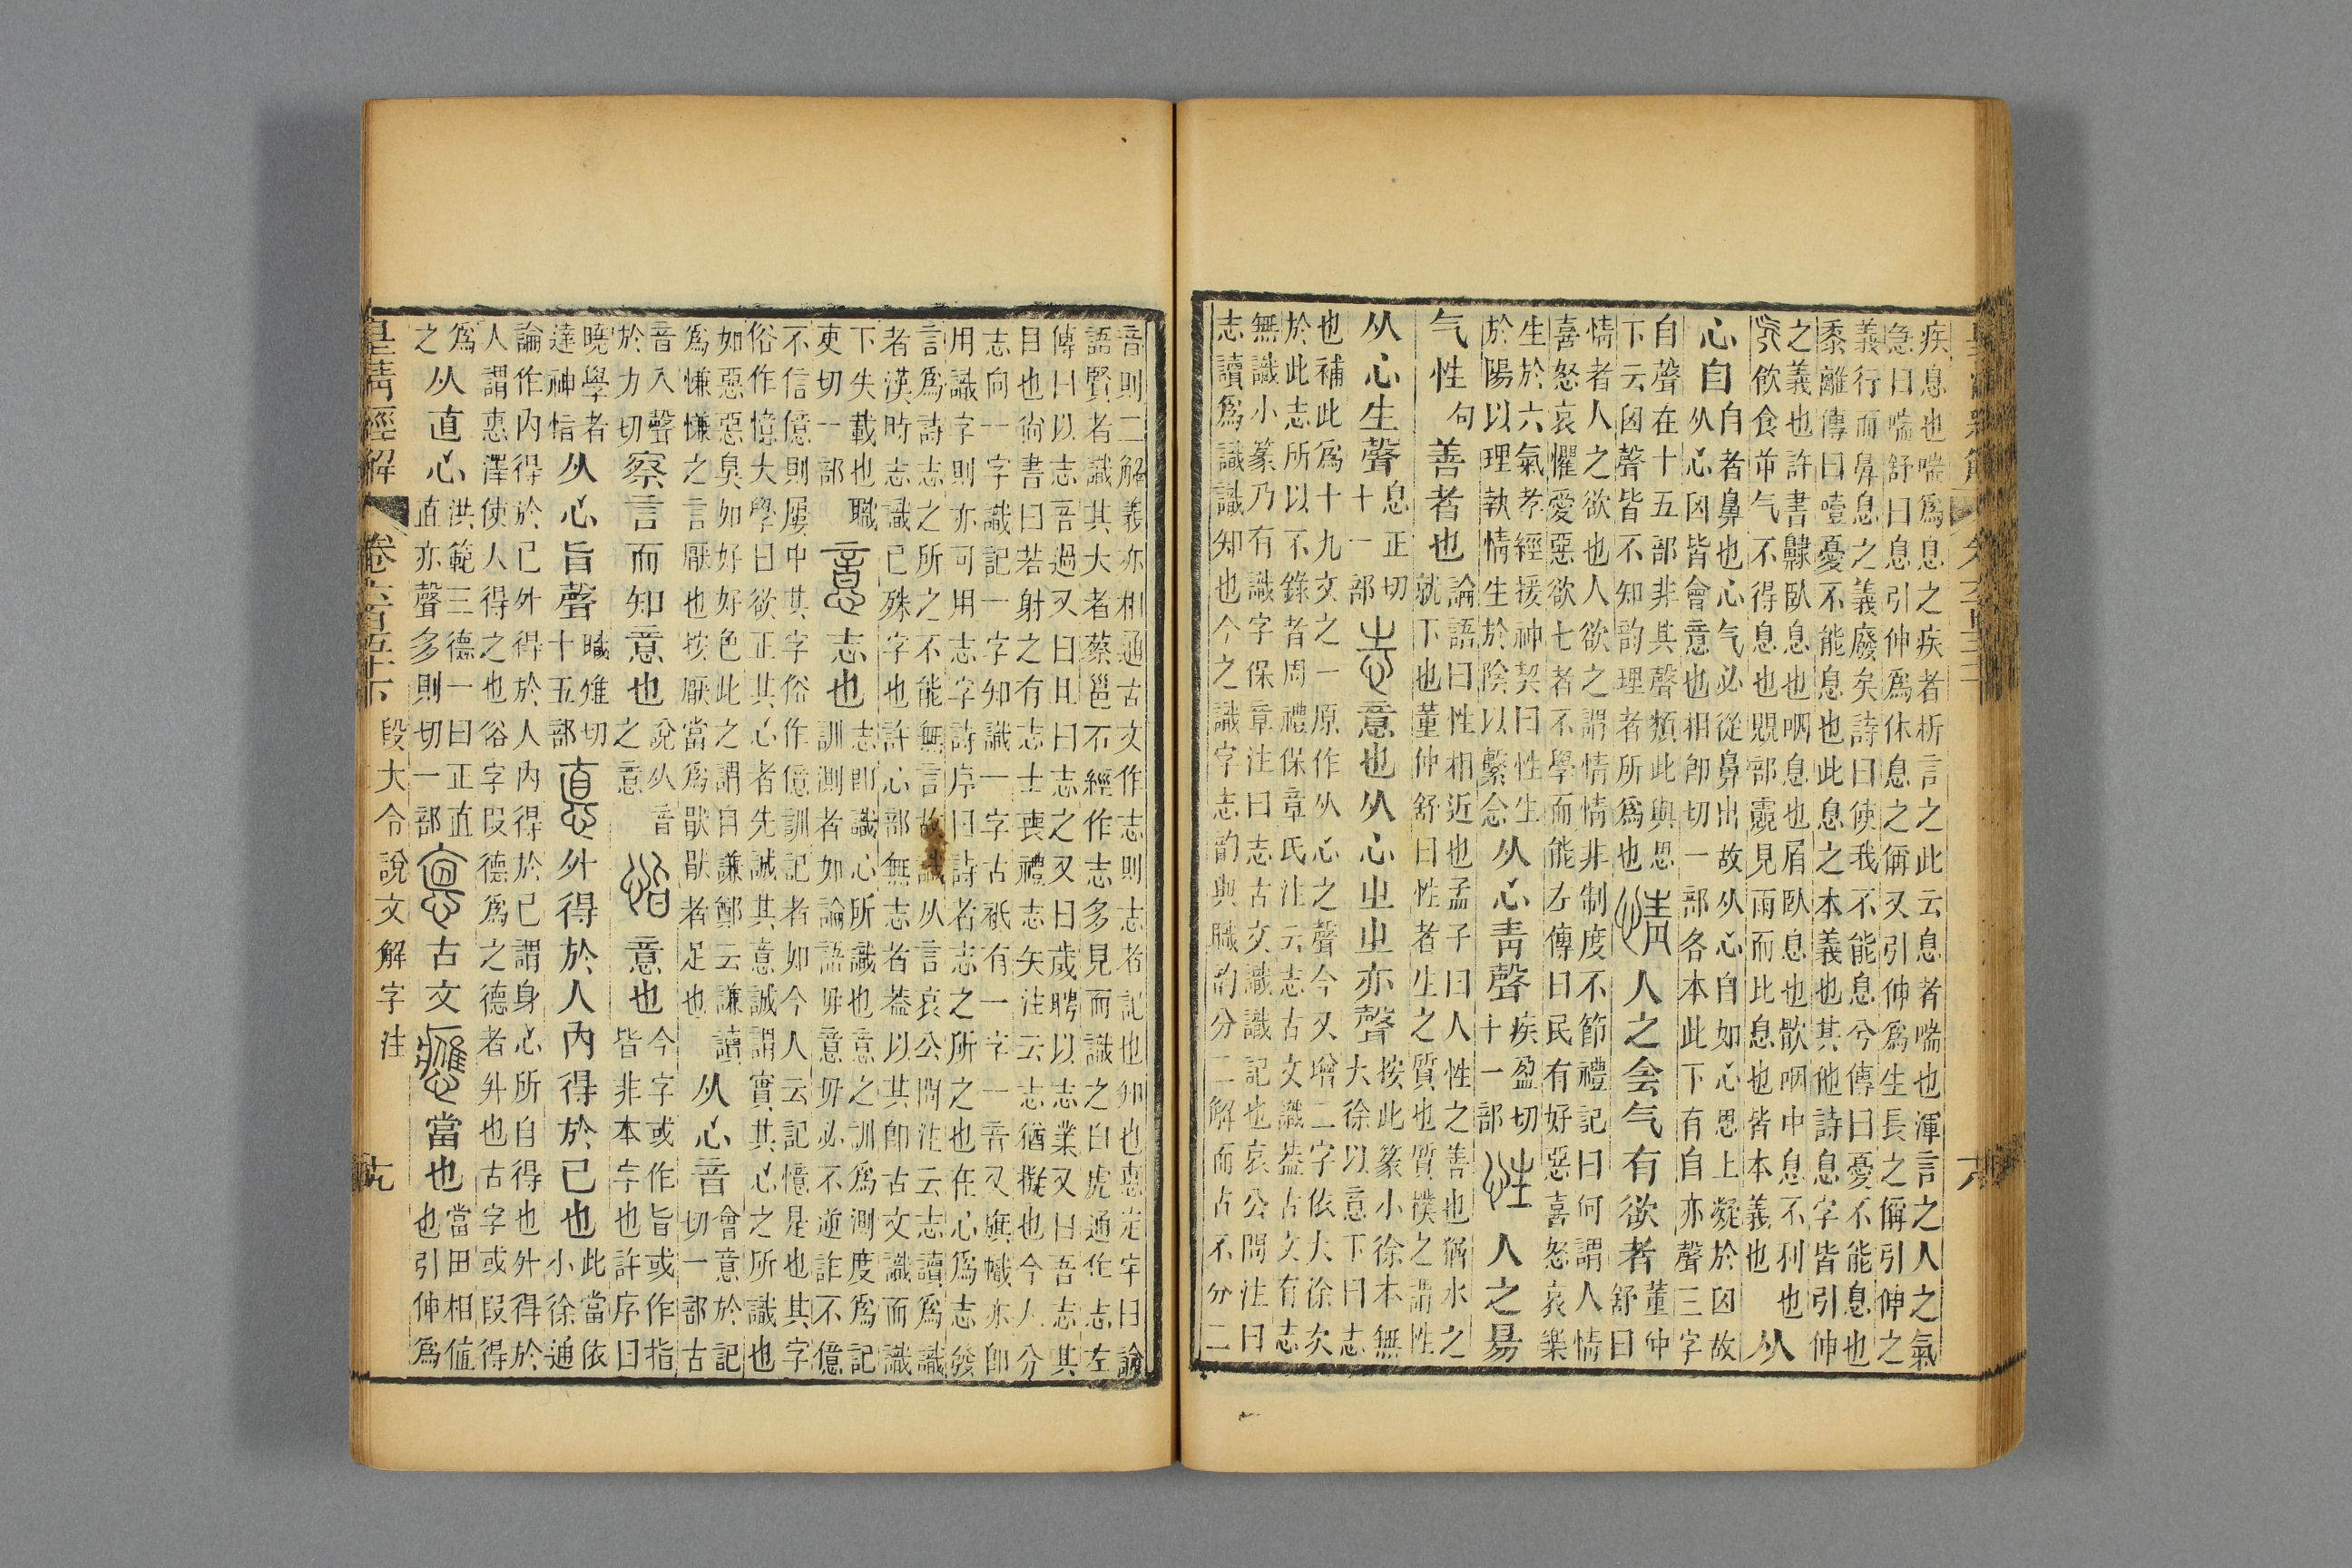 疾息也喘爲息之疾者析言之此云息者喘也渾言之人之氣
急曰喘舒曰息引伸爲休息之偁又引伸爲生長之偁引伸之
義行而鼻息之義廢矣詩曰使我不能息兮傳曰憂不能息也
黍離傳曰噎憂不能息也此息之本義也其他詩息字皆引伸
之義也許書隸臥息也呬息也眉臥息也歇咽中息不利也
旡飲食屰气不得息也覞部䨳見雨而比息也皆本義也从
心自自者鼻也心气必從鼻出故从心自如心思上凝於囟故
从心囟皆會意也相卽切一部各本此下有自亦聲三字
自聲在十五部非其聲類此與思
下云囟聲皆不知韵理者所爲也情人之会气有欲者董仲舒曰
情者人之欲也人欲之謂情情非制度不節禮記曰何謂人情
喜怒哀懼愛惡欲七者不學而能左傳曰民有好惡喜怒哀樂
生於六氣孝經援神契曰性生
於陽以理執情生於陰以繫念从心靑聲疾盈切十一部性人之昜
气性句善者也論語曰性相近也孟子曰人性之善也猶水之
就下也董仲舒曰性者生之質也質樸之謂性
从心生聲息正切十一部志意也从心㞢㞢亦聲按此篆小徐本無
大徐以意下曰志
也補此爲十九文之一原作从心之聲今又增二字依大徐次
於此志所以不錄者周禮保章氏注云志古文識葢古文有志
無識小篆乃有識字保章注曰志古文識識記也哀公問注曰
志讀爲識識知也今之識字志韵與職韵分二解而古不分二
音則二解義亦相通古文作志則志者記也知也惠定宇曰論
語賢者識其大者蔡邕石經作志多見而識之白虎通作志左
傳曰以志吾過又曰且曰志之又曰歲聘以志業又曰吾志其
目也尙書曰若射之有志士喪禮志矢注云志猶擬也今人分
志向一字識記一字知識一字古衹有一字一音又旗幟亦卽
用識字則亦可用志字詩序曰詩者志之所之也在心爲志發
言爲詩志之所之不能無言故識从言哀公問注云志讀爲識
者漢時志識已殊字也許心部無志者葢以其卽古文識而識
下失載也職
吏切一部意志也志卽識心所識也意之訓爲測度爲記
訓測者如論語毋意毋必不逆詐不億
不信億則屢中其字俗作億訓記者如今人云記憶是也其字
俗作憶大學曰欲正其心者先誠其意誠謂實其心之所識也
如惡惡臭如好好色此之謂自謙鄭云謙讀
爲慊慊之言厭也按厭當爲猒猒者足也从心音會意於記切一部古
音入聲於力切察言而知意也說从音之意恉意也今字或作旨或作指
皆非本字也許序曰
曉學者達神恉从心旨聲職雉切十五部悳外得於人內得於己也此當依
小徐通
論作內得於己外得於人內得於己謂身心所自得也外得於
人謂惠澤使人得之也俗字叚德爲之德者升也古字或叚得
爲之从直心洪範三德一曰正直直亦聲多則切一部古文應當也當田相值也引伸爲
皇淸經解
卷六百五十下
段大令說文解字注
九